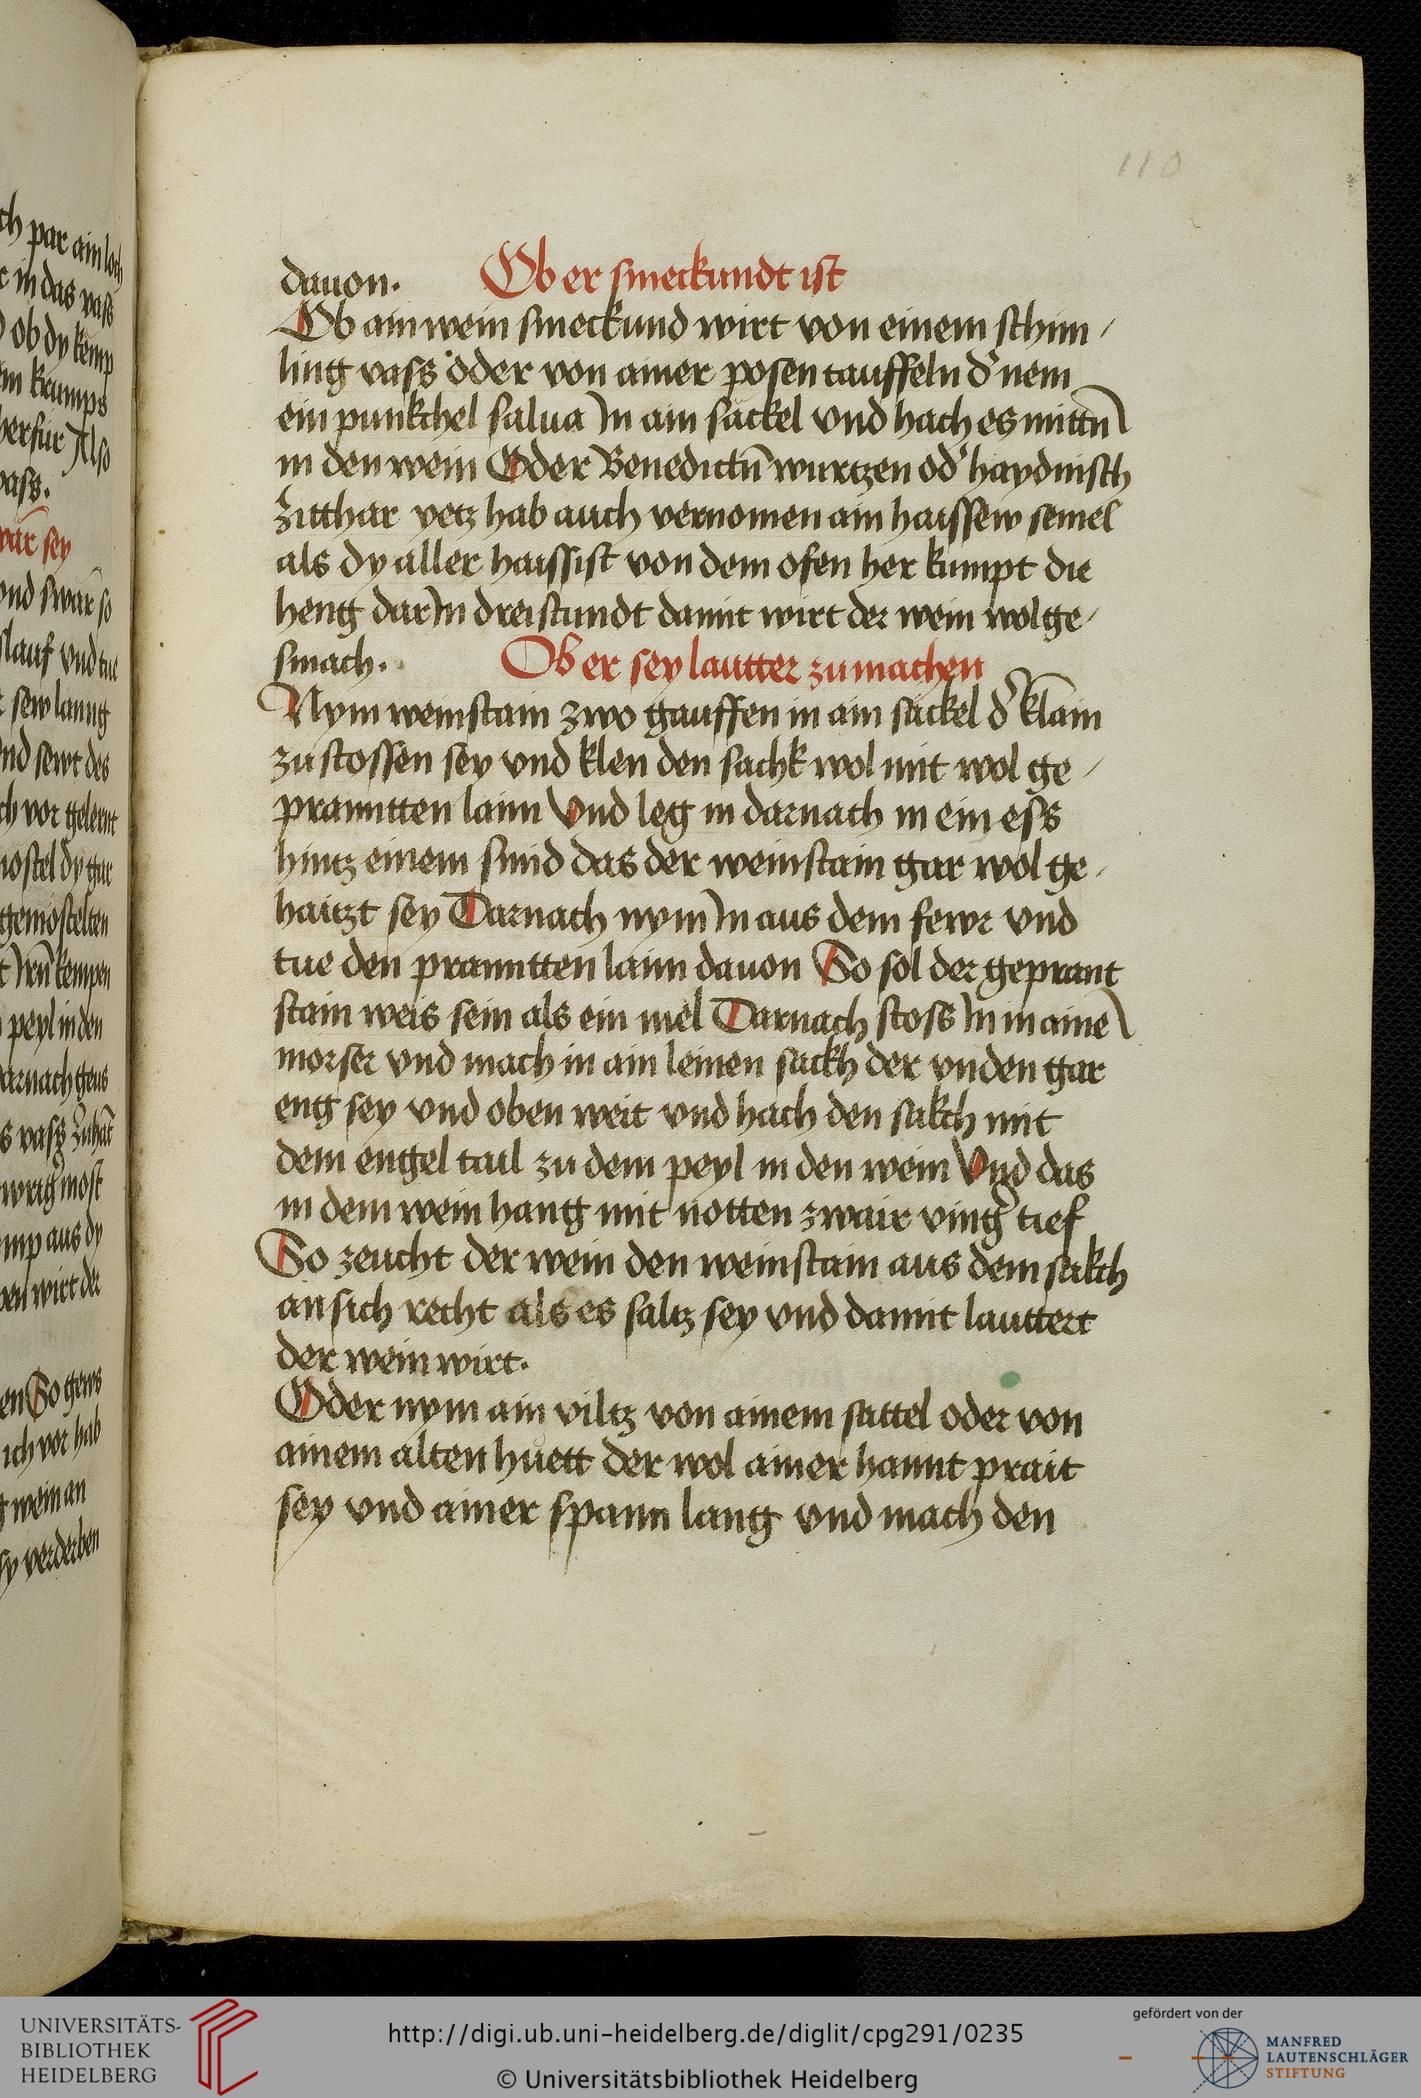 110
dauon. Ob er smeckundt ist
Ob ain wein smeckund wirt von einem schim
ling vass oder von ainer posen tauffeln d' nem
ein punkchel salua In ain säckel vnd hach es mittn̄
in den wein Oder Benedictn̄ wurtzen od' haydnisch
zitthar yetz hab auch vernomen ain haissew semel
als dy aller haissist von dem ofen her kumpt die
heng darIn dreistundt damit wirt der wein wolge
smach. Ob er sey lautter zu machen
Nym weinstain zwo gauffen in ain säckel d' klain
zu stossen sey vnd klen den sachk wol mit wol ge
pranntten laim Vnd leg in darnach in ein ess
hintz einem smid das der weinstain gar wol ge
haitzt sey Darnach nym In aus dem fewr vnd
tue den pranntten laim dauon So sol der geprant
stain weis sein als ein mel Darnach stoss In in aine
morser vnd mach in ain leinen sackh der vnden gar
eng sey vnd oben weit vnd hach den sakch mit
dem engel tail zu dem peyl in den wein Vnd das
in dem wein hang mit notten zwair ving' tief
So zeucht der wein den weinstain aus dem sakch
an sich recht als es saltz sey vnd damit lauttert
der wein wirt.
Oder nym ain viltz von ainem sattel oder von
ainem alten huett der wol ainer hannt prait
sey vnd ainer spann lang vnd mach den
ch par ain loch
in das vass
ob dy kemp
krumps
herfür Also
vass.
wär sey
vnd swär so
slauf vnd tue
sew lanng
vnd sewt des
ch vor gelernt
mostel dy gar
gemöstelten
kempen
peyl in den
darnach geus
s vass
most
mp aus dy
wirt der
en So gews
ich vor hab
wein an
verderben
UNIVERSITÄTS-
BIBLIOTHEK
HEIDELBERG
http://digi.ub.uni-heidelberg.de/diglit/cpg291/0235
© Universitätsbibliothek Heidelberg
gefördert von der
MANFRED
LAUTENSCHLÄGER
STIFTUNG